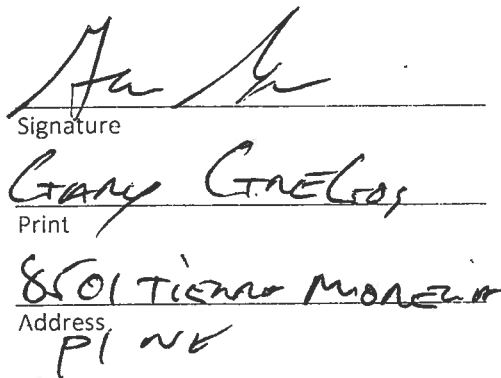 Signature
GARY GREGOS
Print
8501 TIERRA MORENA
Address
Pl NE